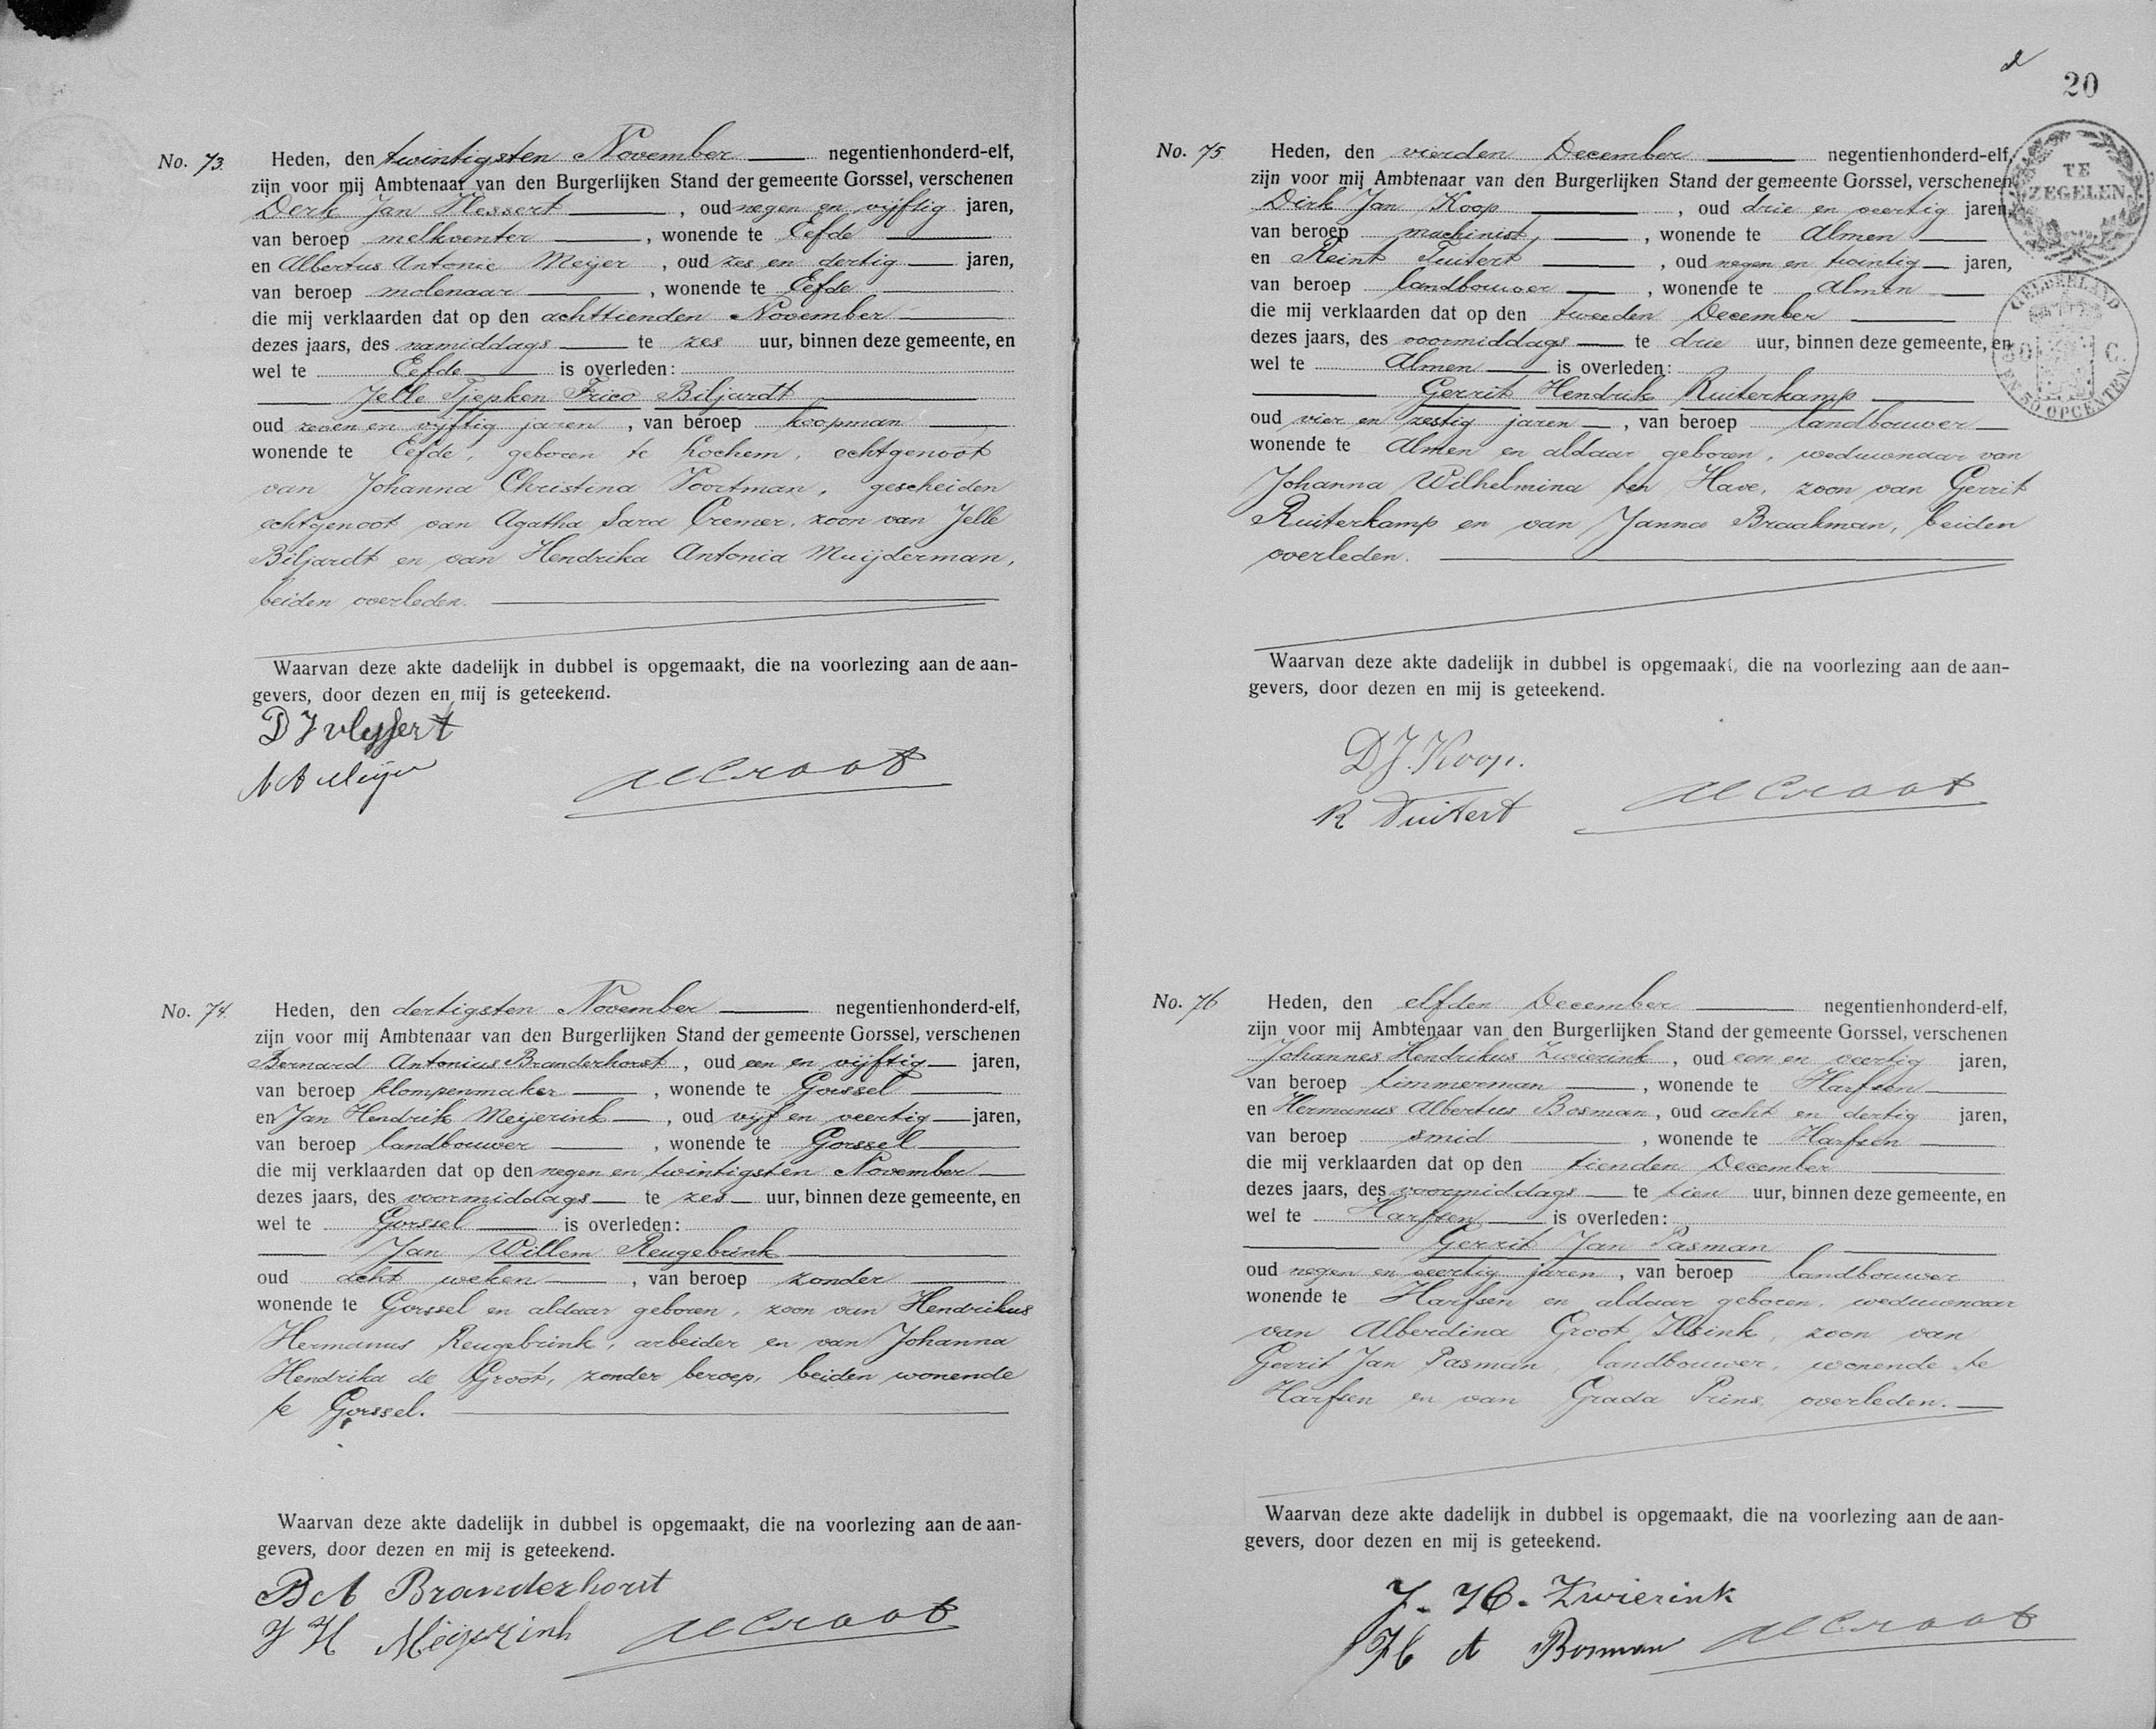 No. 73. Heden, den twintigsten November negentienhonderd-elf,
zijn voor mij Ambtenaar van den Burgerlijken Stand der gemeente Gorssel, verschenen
Derk Jan Vlessert, oud negen en vijftig jaren,
van beroep melkventer, wonende te Eefde
en Albertus Antonie Meijer, oud zes en dertig jaren,
van beroep molenaar, wonende te Eefde
die mij verklaarden dat op den achttienden November
dezes jaars, des namiddags te zes uur, binnen deze gemeente, en
wel te Eefde is overleden:
Jelle Tjepken Frico Biljardt
oud zeven en vijftig jaren, van beroep koopman
wonende te Eefde, geboren te Lochem, echtgenoot
van Johanna Christina Voortman, gescheiden
echtgenoot van Agatha Sara Cremer, zoon van Jelle
Biljardt en van Hendrika Antonia Muijderman,
beiden overleden.
Waarvan deze akte dadelijk in dubbel is opgemaakt, die na voorlezing aan de aan-
gevers, door dezen en mij is geteekend.
D J vlessert
A A Meijer
No. 74. Heden, den dertigsten November negentienhonderd-elf,
zijn voor mij Ambtenaar van den Burgerlijken Stand der gemeente Gorssel, verschenen
Bernard Antonius Branderhorst, oud een en vijftig jaren,
van beroep klompenmaker, wonende te Gorssel
en Jan Hendrik Meijerink, oud vijf en veertig jaren,
van beroep landbouwer, wonende te Gorssel
die mij verklaarden dat op den negen en twintigsten November
dezes jaars, des voormiddags te zes uur, binnen deze gemeente, en
wel te Gorssel is overleden:
Jan Willem Reugebrink
oud acht weken, van beroep zonder
wonende te Gorssel en aldaar geboren, zoon van Hendrikus
Hermanus Reugebrink, arbeider en van Johanna
Hendrika de Groot, zonder beroep, beiden wonende
te Gorssel.
Waarvan deze akte dadelijk in dubbel is opgemaakt, die na voorlezing aan de aan-
gevers, door dezen en mij is geteekend.
B A Branderhorst
J H Meijerink
20
TE
ZEGELEN
GELDERLAND
50 C.
EN 50 OPCENTEN
No. 75 Heden, den vierden December negentienhonderd-elf,
zijn voor mij Ambtenaar van den Burgerlijken Stand der gemeente Gorssel, verschenen
Dirk Jan Koop, oud drie en veertig jaren,
van beroep machinist, wonende te Almen
en Reint Tuitert, oud negen en twintig jaren,
van beroep landbouwer, wonende te Almen
die mij verklaarden dat op den tweeden December
dezes jaars, des voormiddags te drie uur, binnen deze gemeente, en
wel te Almen is overleden:
Gerrit Hendrik Ruiterkamp
oud vier en zestig jaren, van beroep landbouwer
wonende te Almen en aldaar geboren, weduwnaar van
Johanna Wilhelmina ten Have, zoon van Gerrit
Ruiterkamp en van Janna Braakman, beiden
overleden.
Waarvan deze akte dadelijk in dubbel is opgemaakt, die na voorlezing aan de aan-
gevers, door dezen en mij is geteekend.
D.J. Koop.
R Tuitert
No. 76 Heden, den elfden December negentienhonderd-elf,
zijn voor mij Ambtenaar van den Burgerlijken Stand der gemeente Gorssel, verschenen
Johannes Hendrikus Zwierink, oud een en veertig jaren,
van beroep timmerman, wonende te Harfsen
en Hermanus Albertus Bosman, oud acht en dertig jaren,
van beroep smid, wonende te Harfsen
die mij verklaarden dat op den tienden December
dezes jaars, des voormiddags te tien uur, binnen deze gemeente, en
wel te Harfsen is overleden:
Gerrit Jan Pasman
oud negen en veertig jaren, van beroep landbouwer
wonende te Harfsen en aldaar geboren, weduwnaar
van Alberdina Groot, zoon van
Gerrit Jan Pasman, landbouwer, wonende te
Harfsen en van Grada Prins, overleden.
Waarvan deze akte dadelijk in dubbel is opgemaakt, die na voorlezing aan de aan-
gevers, door dezen en mij is geteekend.
J. H. Zwierink
H A Bosman